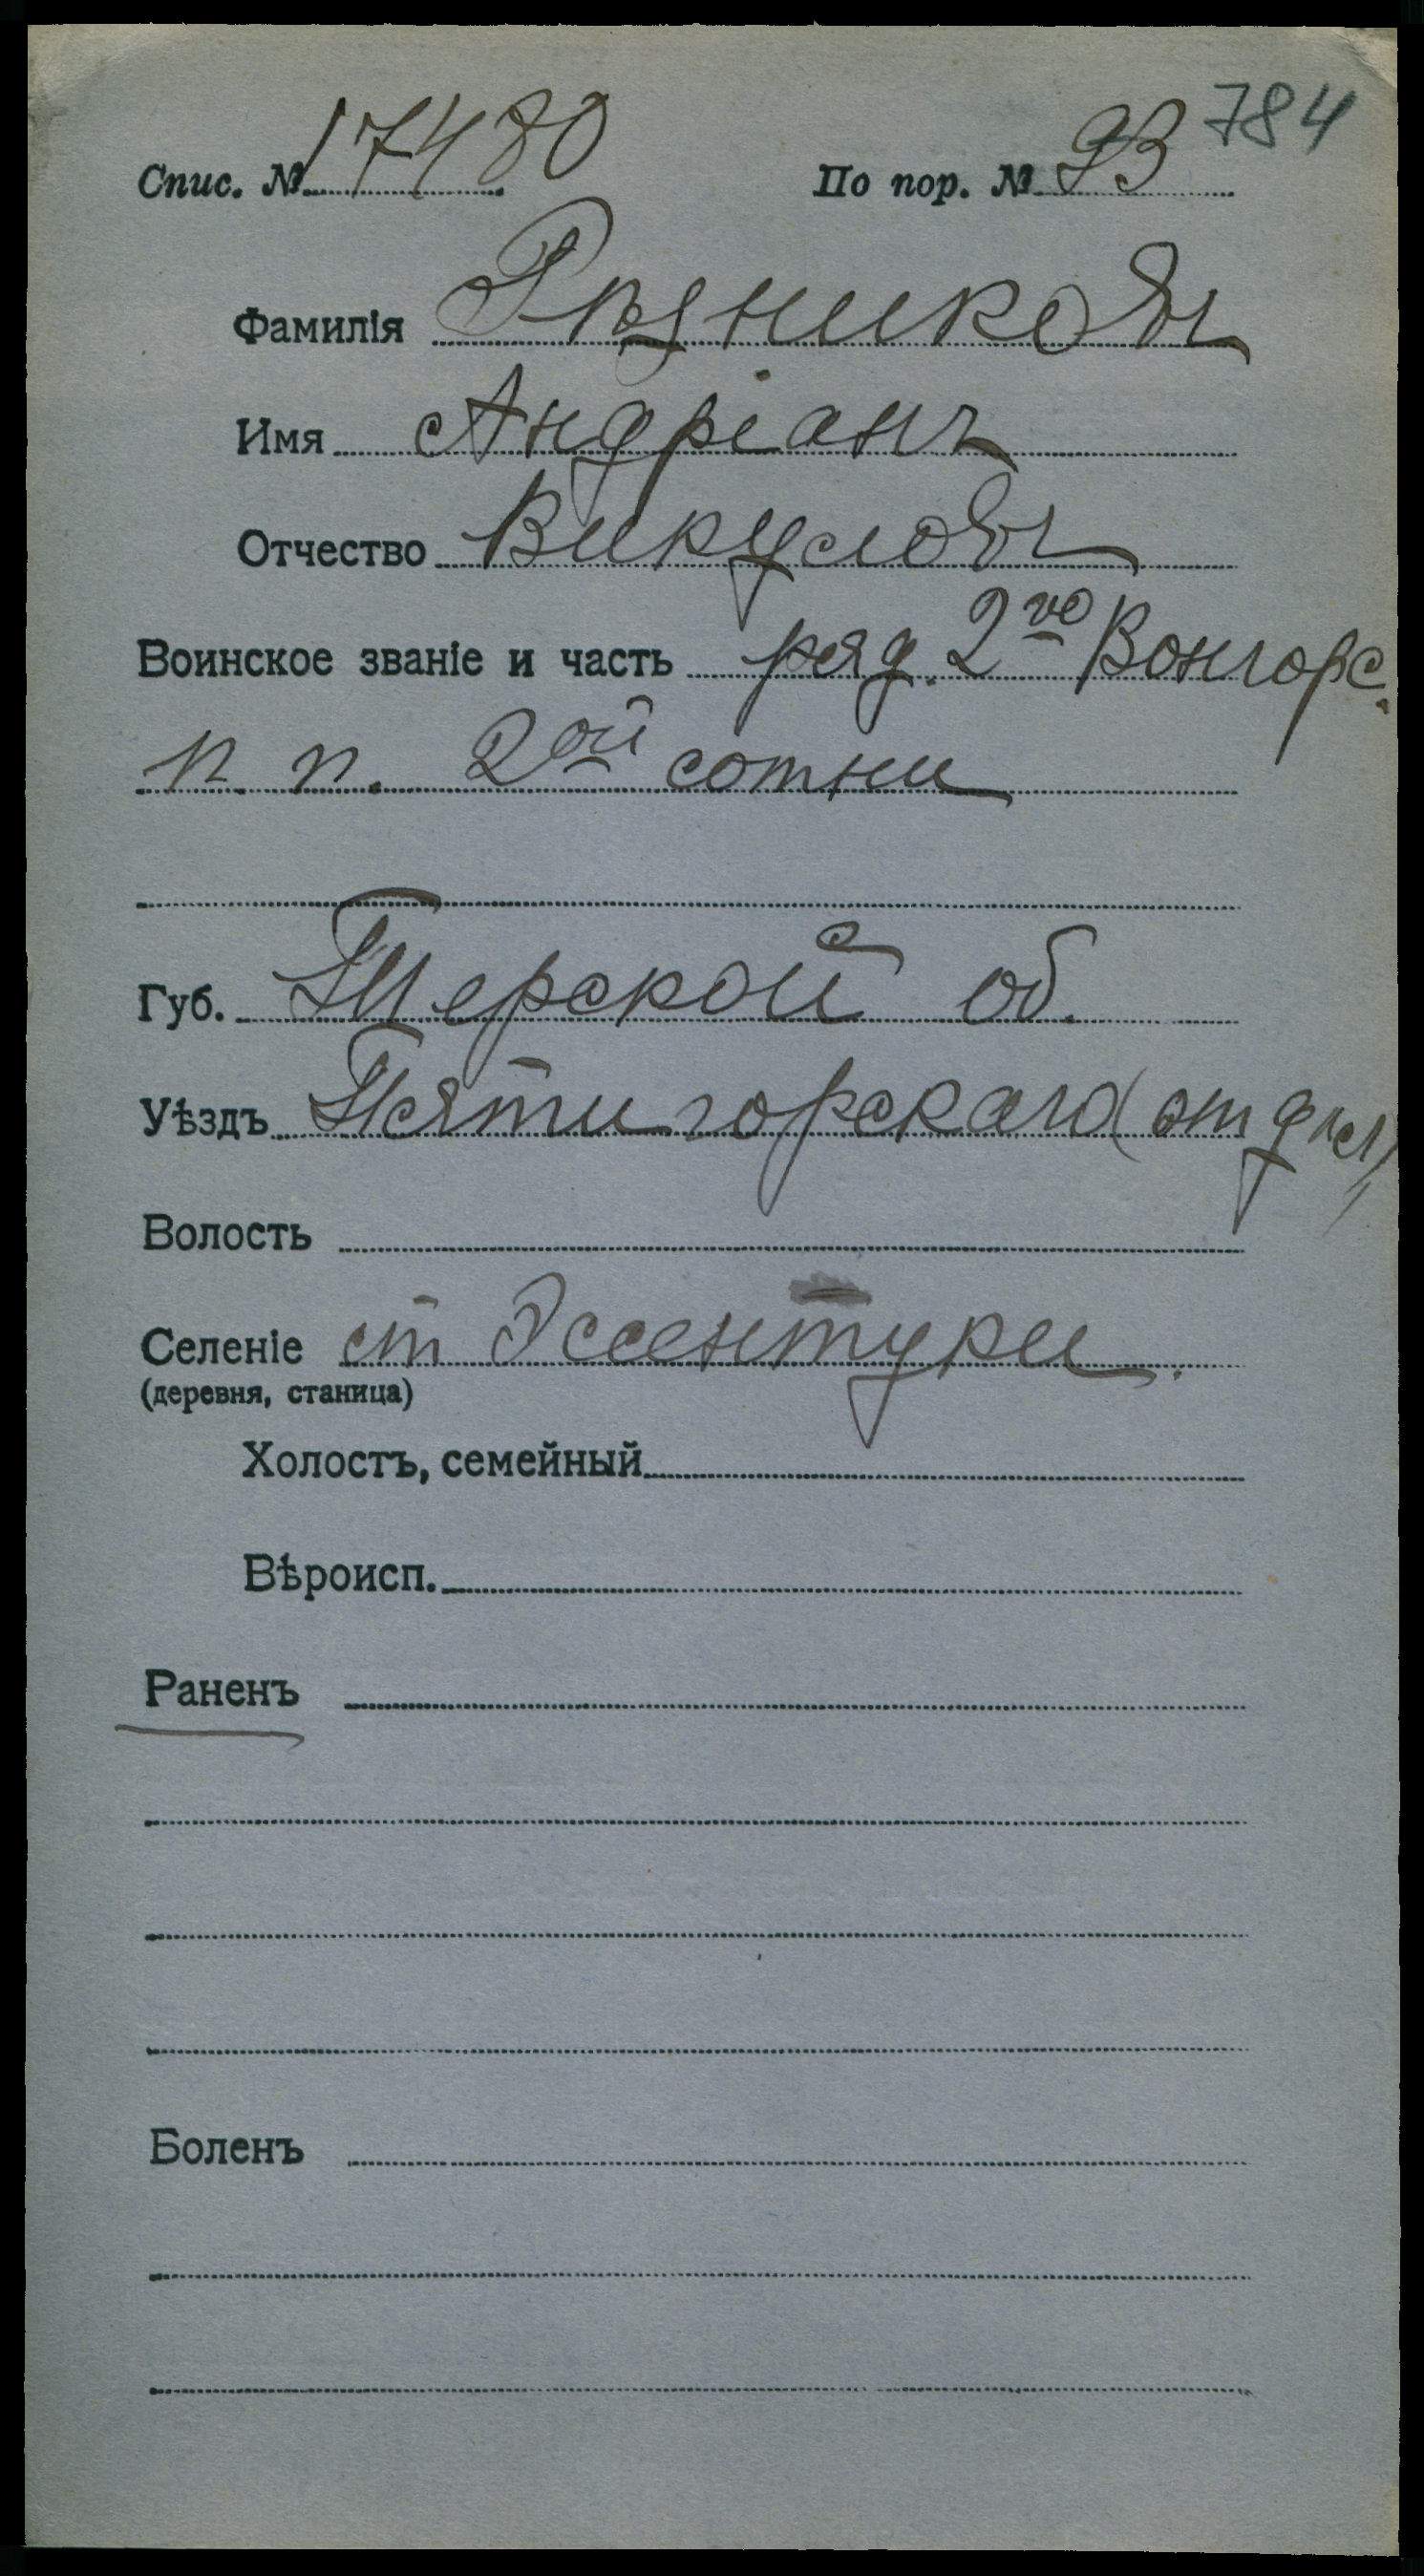 784
Спис. № 17480 По пор. № 93
Фамилія Рѣзниковъ
Имя Андріанъ
Отчество Викуловъ
Воинское званіе и часть ряд. 2го Вонгорс.
п. п. 2ой сотни
Губ. Терской об.
Уѣздъ Пятигорскаго (отдѣл)
Волость
Селеніе ст Эссентуки.
(деревня, станица)
Холостъ, семейный
Вѣроисп.
Раненъ
Боленъ